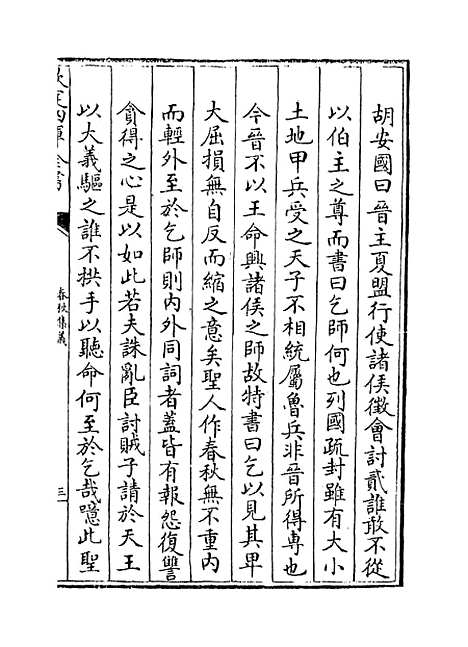 胡安國曰晉主夏盟行使諸侯徵會討貳誰敢不從
以伯主之尊而書曰乞師何也列國疏封雖有大小
土地甲兵受之天子不相統屬魯兵非晉所得専也
今晉不以王命興諸侯之師故特書曰乞以見其卑
大屈損無自反而縮之意矣聖人作春秋無不重内
而輕外至於乞師則内外同詞者蓋皆有報怨復讐
貪得之心是以如此若夫誅亂臣討賊子請於天王
以大義驅之誰不拱手以聽命何至於乞哉噫此聖
欽定四庫全書
春秋集義
三